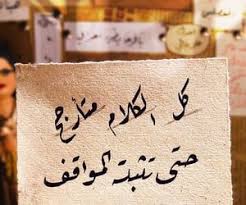 كل الكلام متأرجح
حتى تثبته المواقف